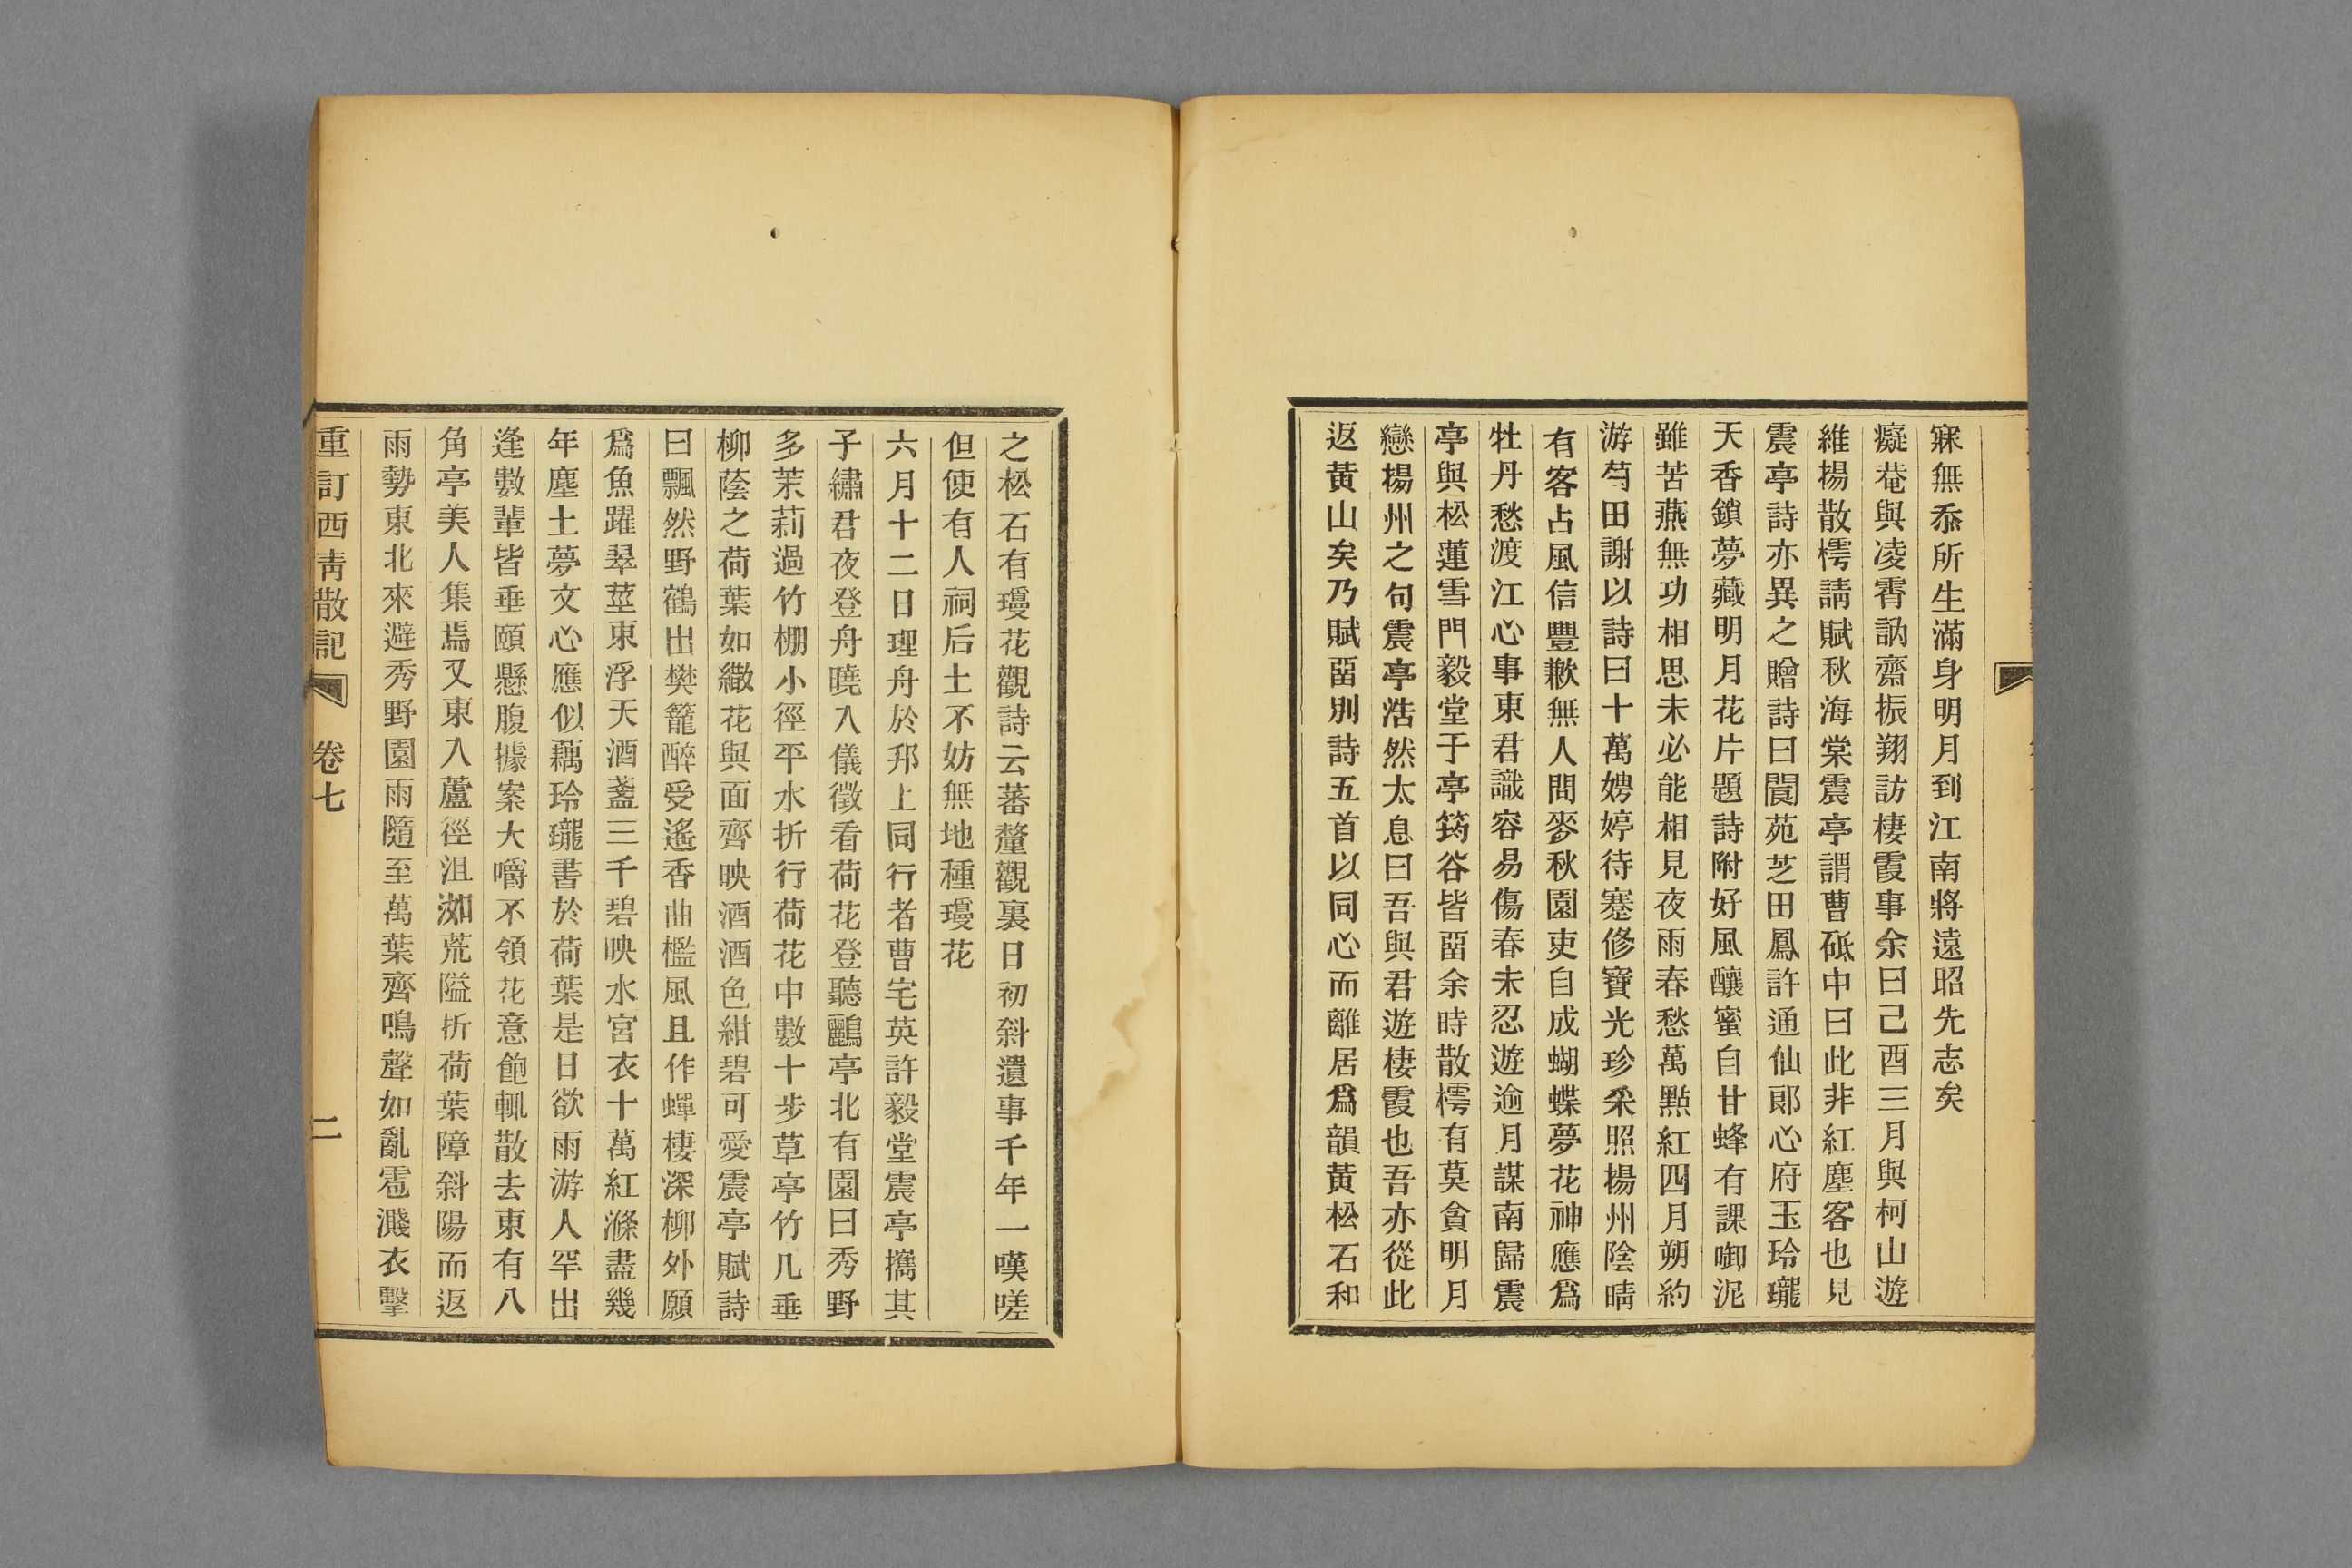 寐無忝所生滿身明月到江南將遠昭先志矣
癡菴與凌霄訥齋振翔訪棲霞事余曰己酉三月與柯山遊
維揚散樗請賦秋海棠震亭謂曹砥中曰此非紅塵客也見
震亭詩亦異之贈詩曰閬苑芝田鳳許通仙郞心府玉玲瓏
天香鎖夢藏明月花片題詩附好風釀蜜自甘蜂有課啣泥
雖苦燕無功相思未必能相見夜雨春愁萬點紅四月朔約
游芍田謝以詩曰十萬娉婷待蹇修寶光珍釆照揚州陰晴
有客占風信豐歉無人問麥秋園吏自成蝴蝶夢花神應爲
牡丹愁渡江心事東君識容易傷春未忍遊逾月謀南歸震
亭與松蓮雪門毅堂于亭筠谷皆畱余時散樗有莫貪明月
戀揚州之句震亭浩然太息曰吾與君遊棲霞也吾亦從此
返黃山矣乃賦畱別詩五首以同心而離居爲韻黃松石和
之松石有瓊花觀詩云蕃釐觀裏日初斜遺事千年一嘆嗟
但使有人祠后土不妨無地種瓊花
六月十二日理舟於邗上同行者曹宅英許毅堂震亭攜其
子繡君夜登舟曉入儀徵看荷花登聽鸝亭北有園曰秀野
多茉莉過竹棚小徑平水折行荷花中數十步草亭竹几垂
柳蔭之荷葉如繖花與面齊映酒酒色紺碧可愛震亭賦詩
曰飄然野鶴出樊籠醉受遙香曲檻風且作蟬棲深柳外願
爲魚躍翠莖東浮天酒盞三千碧映水宮衣十萬紅滌盡幾
年塵土夢文心應似藕玲瓏書於荷葉是日欲雨游人罕出
逢數輩皆垂頤懸腹據案大嚼不領花意飽輒散去東有八
角亭美人集焉又東入蘆徑沮洳荒隘折荷葉障斜陽而返
雨勢東北來避秀野園雨隨至萬葉齊鳴聲如亂雹濺衣擊
重訂西靑散記 卷七 二